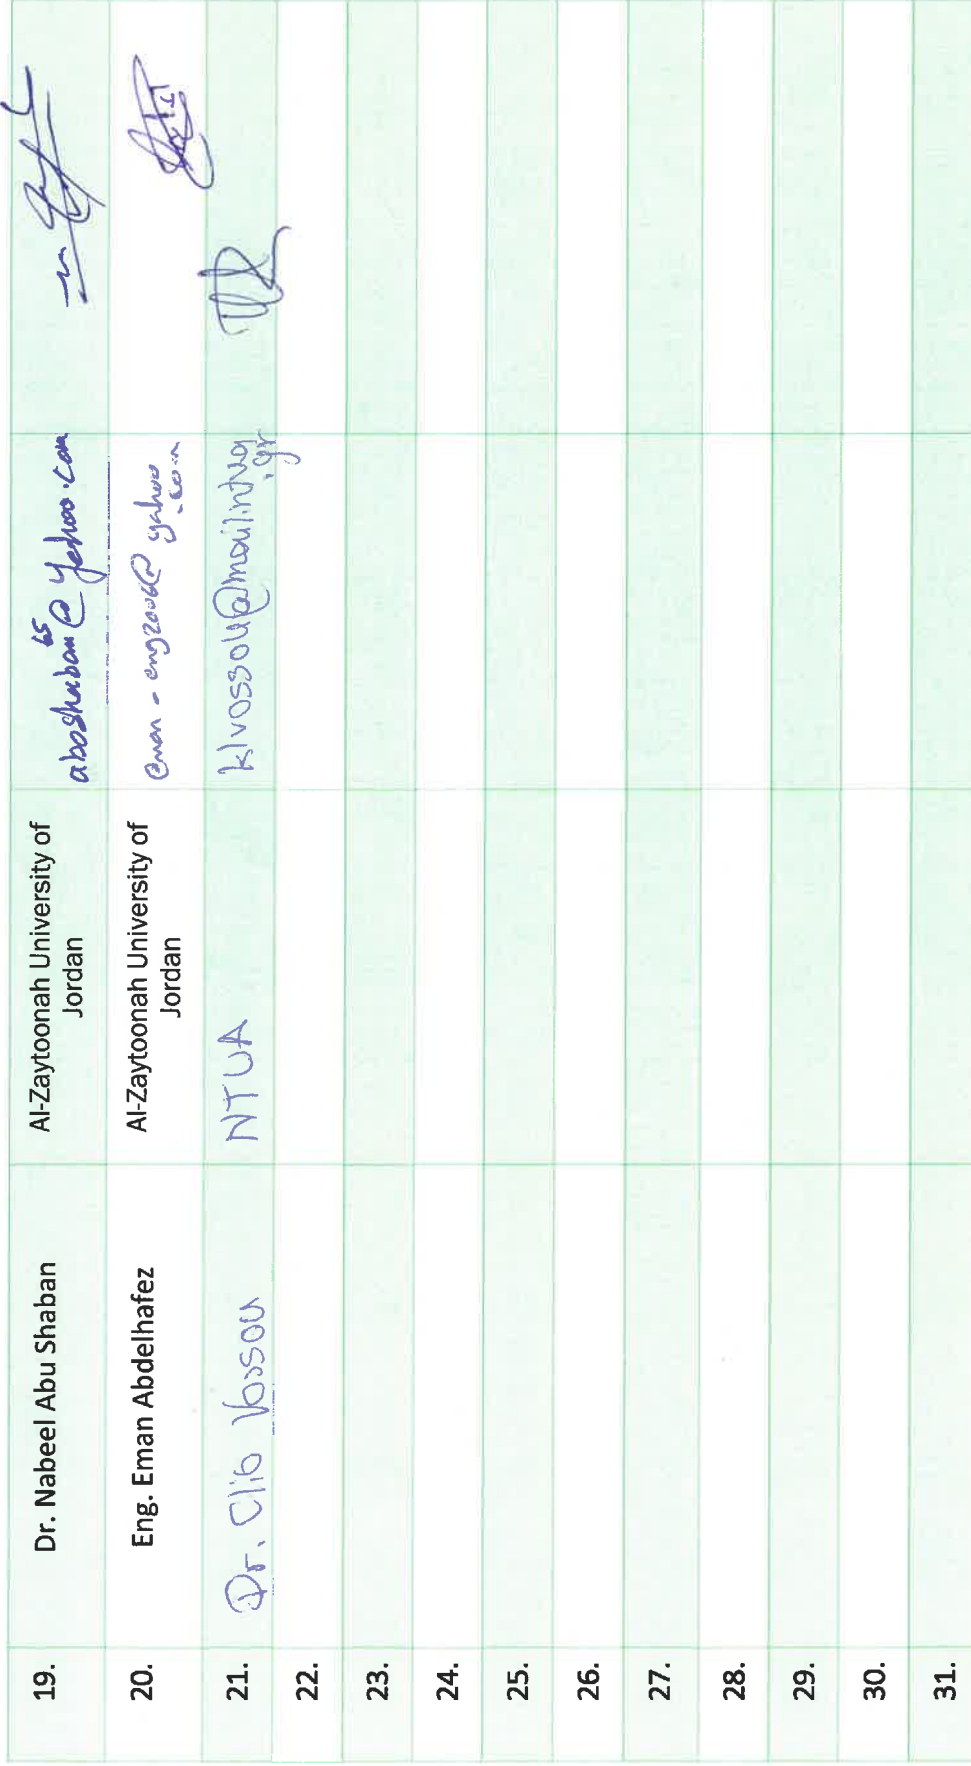 19. Dr. Nabeel Abu Shaban Al-Zaytoonah University of Jordan aboshaban65@yahoo.com
20. Eng. Eman Abdelhafez Al-Zaytoonah University of Jordan eman-eng2006@yahoo.com
21. Dr. Clio Vossou NTUA klvossou@mail.ntua.gr
22.
23.
24.
25.
26.
27.
28.
29.
30.
31.